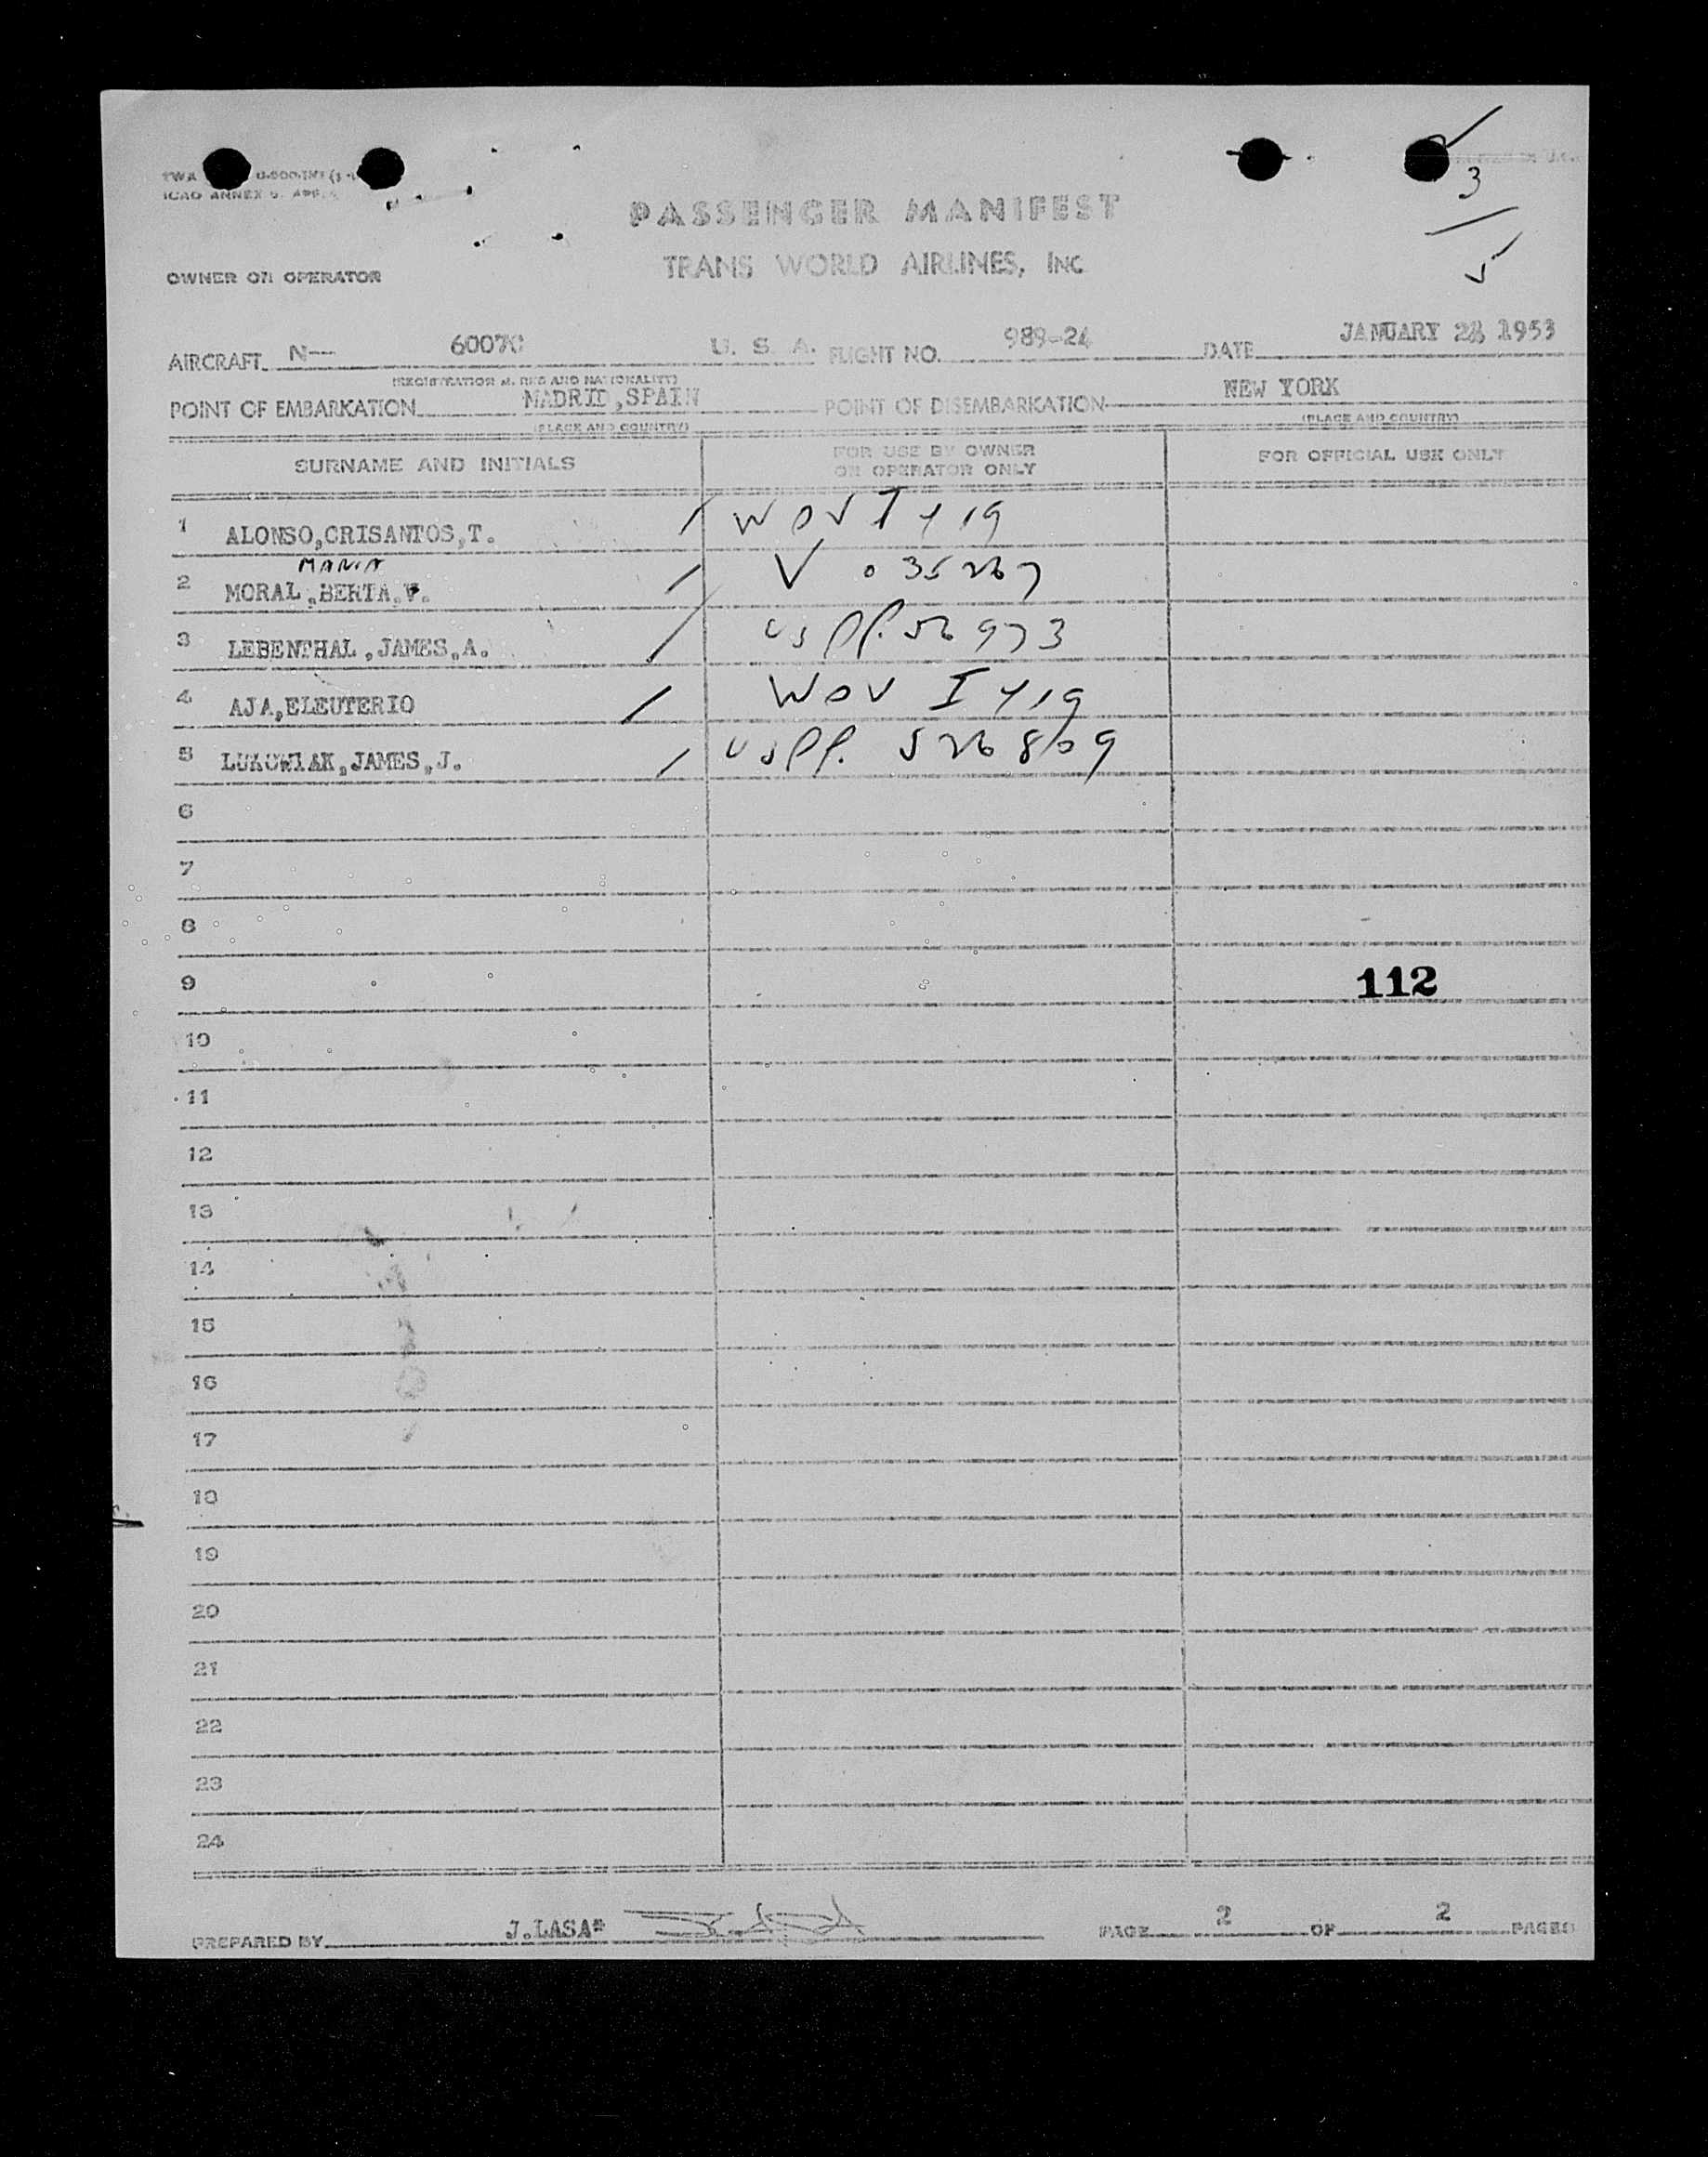 TWA
ICAO ANNEX 9,
3
5
PASSENGER MANIFEST
TRANS WORLD AIRLINES, INC
OWNER OR OPERATOR
AIRCRAFT N— 6007C U. S. A. FLIGHT NO. 989-24 DATE JANUARY 1953
(REGISTRATION MARKS AND NATIONALITY)
POINT OF EMBARKATION MADRID,SPAIN POINT OF DISEMBARKATION NEW YORK
(PLACE AND COUNTRY) (PLACE AND COUNTRY)
SURNAME AND INITIALS FOR USE BY OWNER OR OPERATOR ONLY FOR OFFICIAL USE ONLY
1 ALONSO,CRISANTOS,T. / WOV I 419
MARIA
2 MORAL,BERTA,V. / V 035267
3 LEBENTHAL,JAMES,A. / US PP. 56973
4 AJA,ELEUTERIO / WOV I 419
5 LUKOWIAK,JAMES,J. / US PP. 526809
6
7
8
9 112
10
11
12
13
14
15
16
17
18
19
20
21
22
23
24
PREPARED BY J.LASA* PAGE 2 OF 2 PAGES